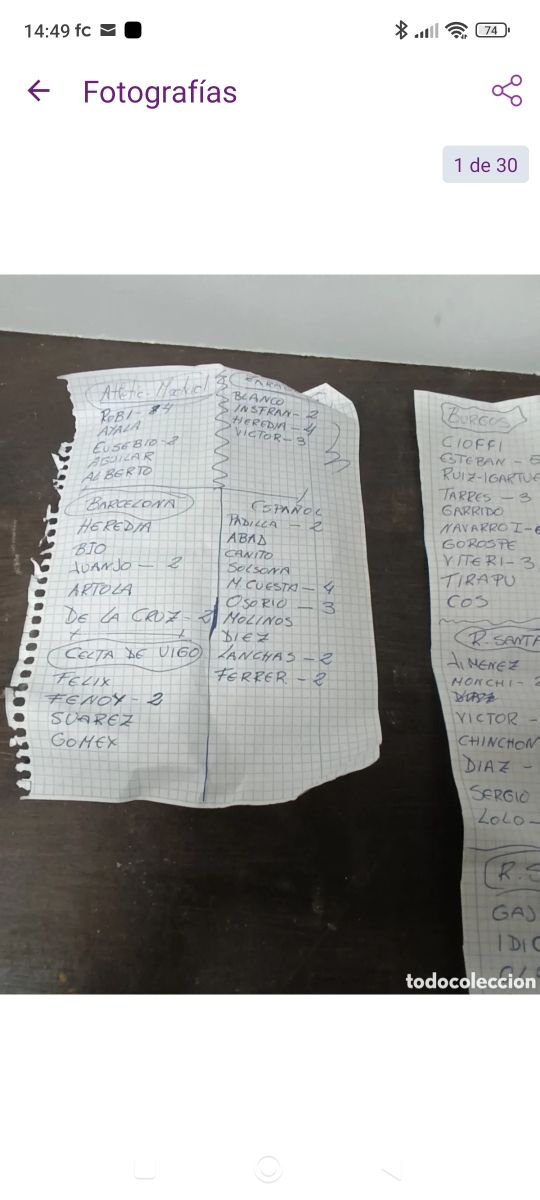 14:49 fc
74
Fotografías
1 de 30
Atletic. Madrid
ROBI - 4
AYALA
EUSEBIO - 2
AGUILAR
ALBERTO
BARCELONA
HEREDIA
BIO
JUANJO - 2
ARTOLA
DE LA CRUZ - 2
CELTA DE VIGO
FELIX
FENOY - 2
SUAREZ
GOMEX
BLANCO
INSFRAN - 2
HEREDIA - 4
VICTOR - 3
ESPAÑOL
PADILLA - 2
ABAD
CANITO
SOLSONA
M. CUESTA - 4
OSORIO - 3
MOLINOS
DIEZ
LANCHAS - 2
FERRER - 2
BURGOS
CIOFFI
ESTEBAN -
RUIZ-IGARTUE
TARRES - 3
GARRIDO
NAVARRO I -
GOROSPE
VITERI - 3
TIRAPU
COS
R. SANTA
JIMENEZ
MONCHI - 2
VICTOR -
CHINCHON
DIAZ -
SERGIO
LOLO -
R. S
GAJ
IDIC
todocoleccion